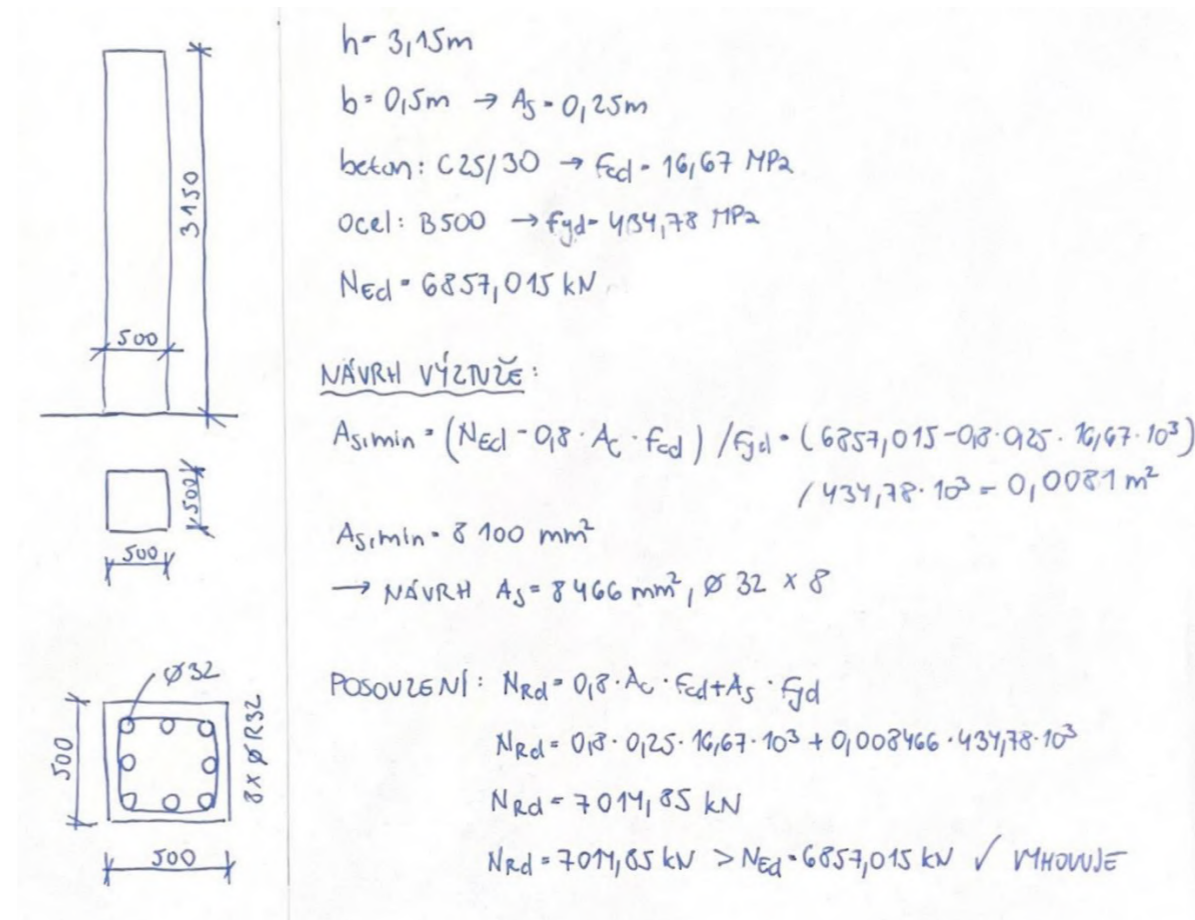 h= 3,15m
b= 0,5m → As = 0,25m
beton: C25/30 → fcd = 16,67 MPa
ocel: B500 → fyd = 434,78 MPa
NEd = 6857,015 kN
NÁVRH VÝZTUŽE:
As,min = (NEd - 0,8 · Ac · fcd) / fyd = (6857,015 - 0,8 · 0,25 · 16,67 · 10³)
/ 434,78 · 10³ = 0,0081 m²
As,min = 8 100 mm²
→ NÁVRH As = 8466 mm², Ø 32 x 8
POSOUZENÍ: NRd = 0,8 · Ac · fcd + As · fyd
NRd = 0,8 · 0,25 · 16,67 · 10³ + 0,008466 · 434,78 · 10³
NRd = 7014,85 kN
NRd = 7014,85 kN > NEd = 6857,015 kN ✓ VYHOVUJE
3150
500
500
500
Ø32
500
8 x Ø R32
500